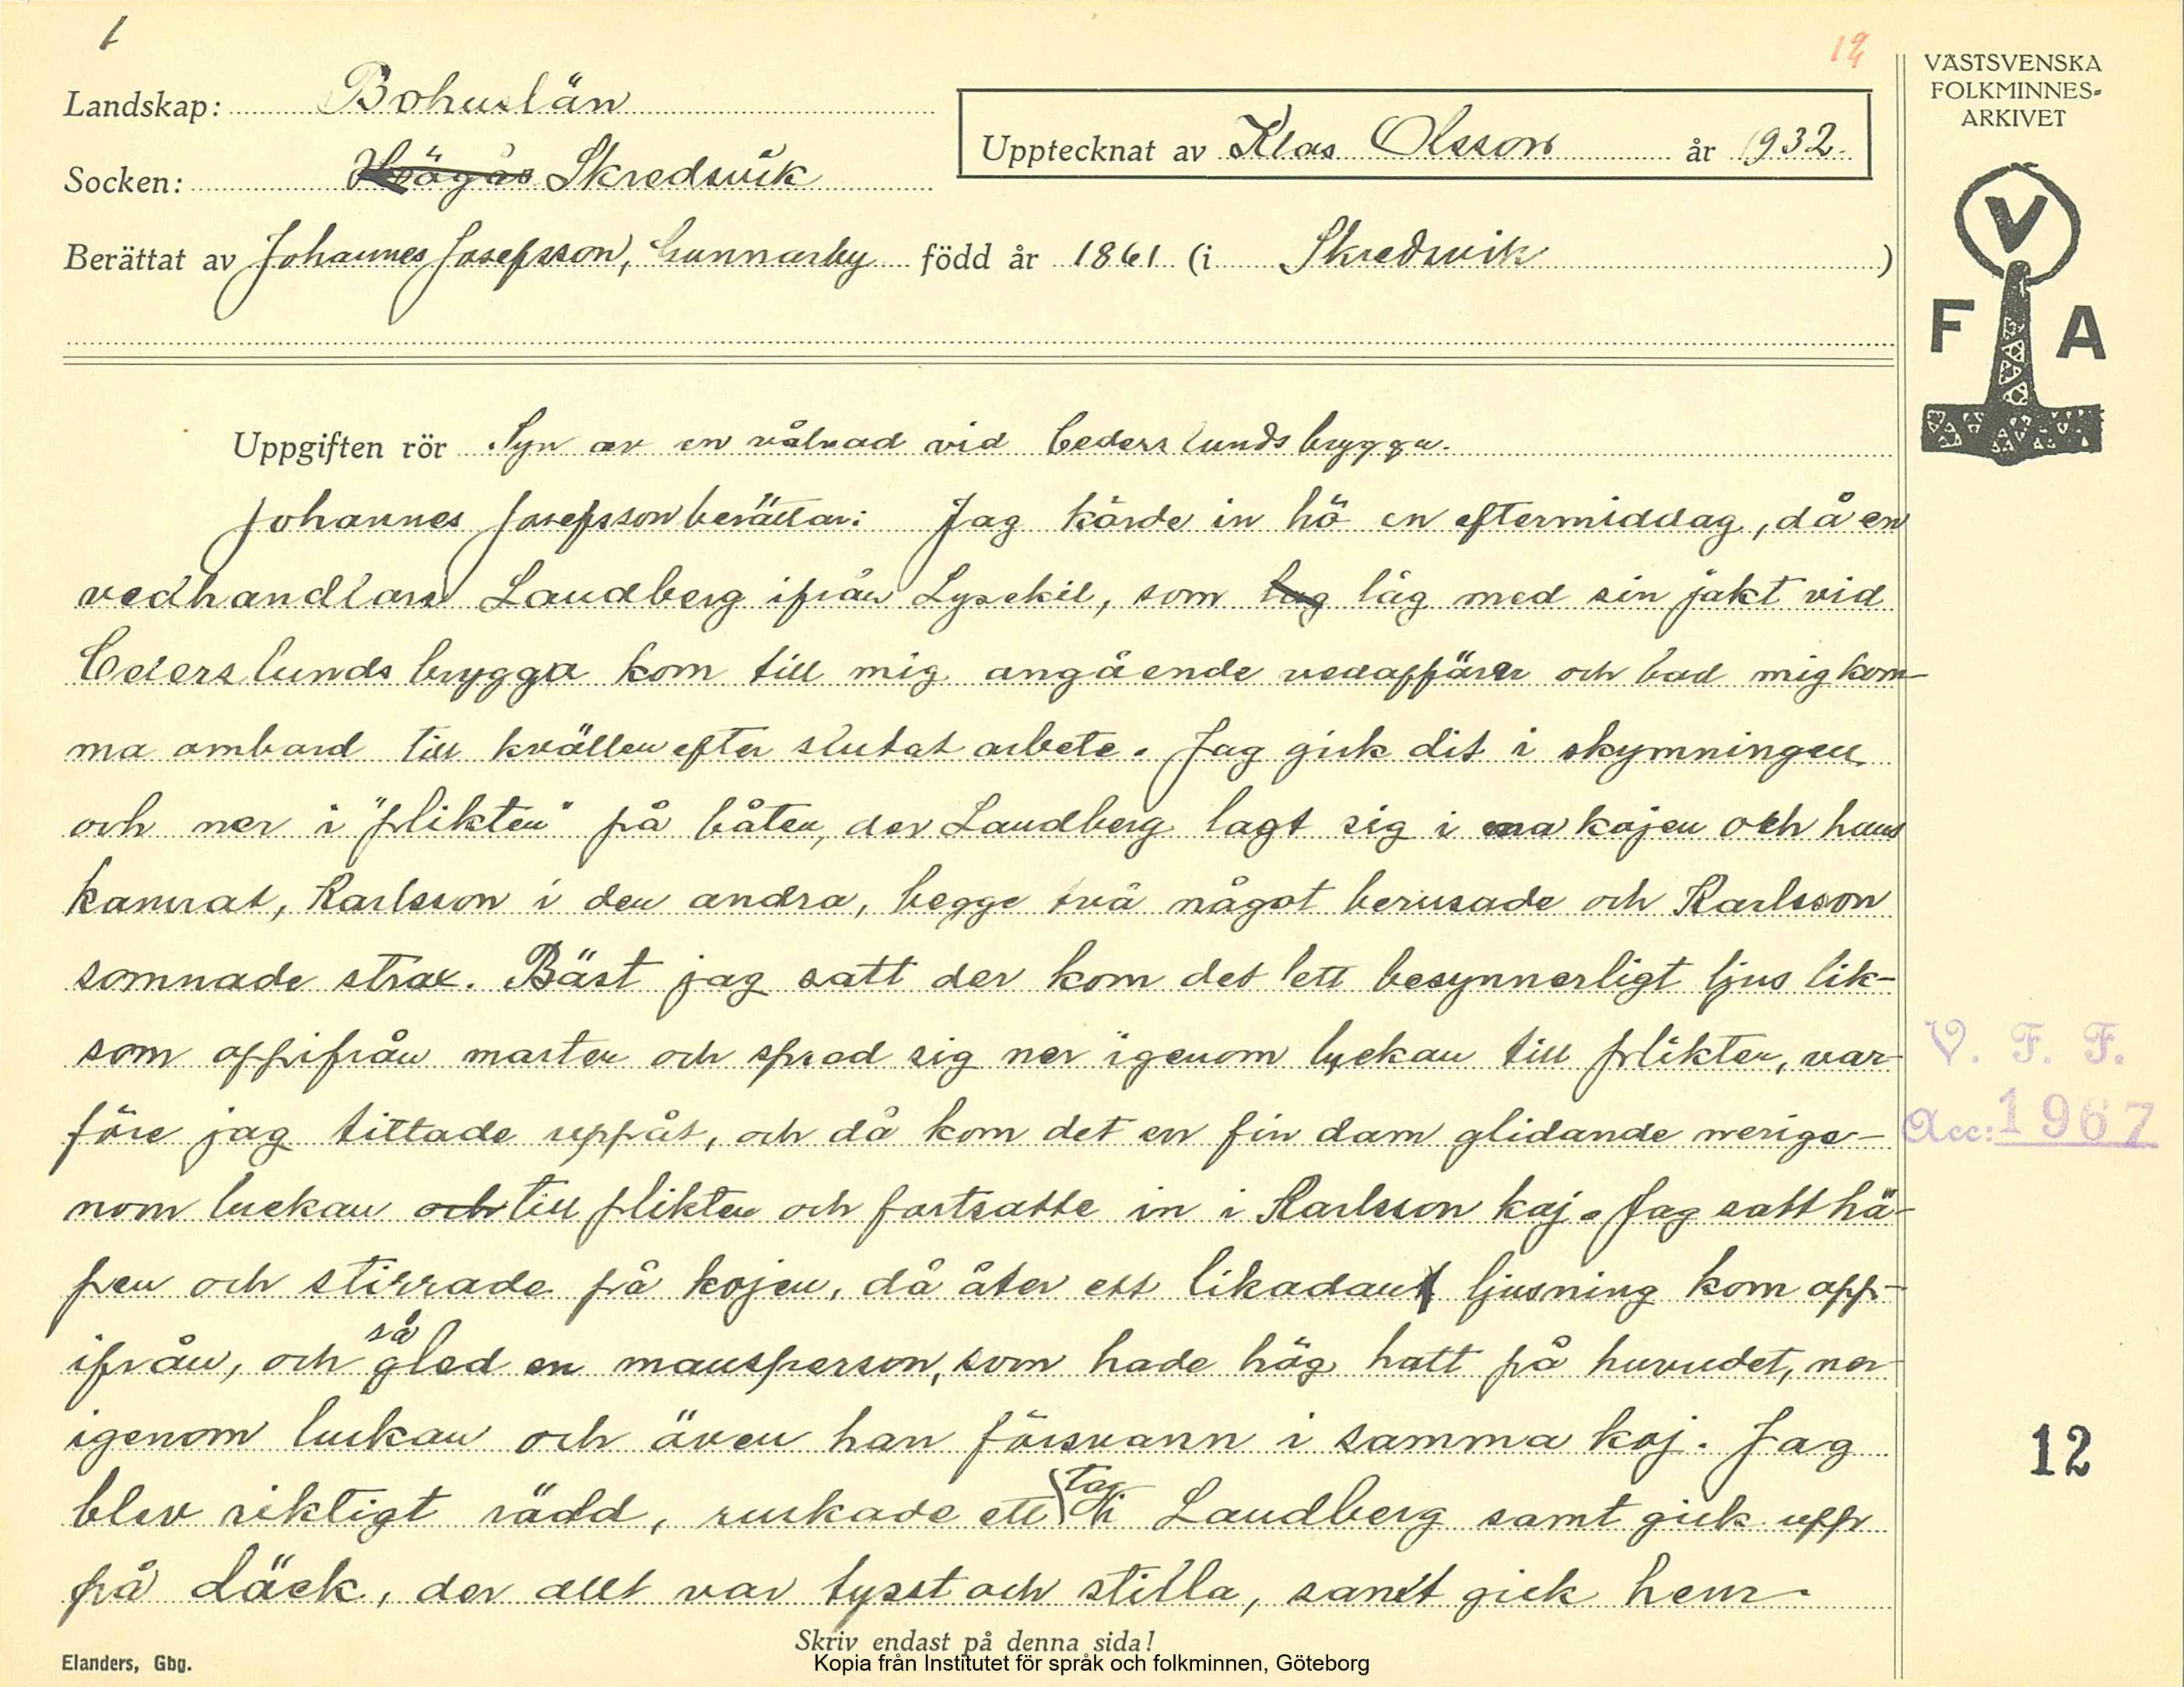 1
12
Landskap: Bohuslän
Socken: Högås Skredsvik
Upptecknat av Klas Olsson år 1932.
Berättat av Johannes Josefsson, Gunnarby född år 1861 (i Skredsvik)
VÄSTSVENSKA
FOLKMINNES-
ARKIVET
V
F A
Uppgiften rör Syn av en vålnad vid Cederslunds brygga.
Johannes Josefsson berättar: Jag körde in hö en eftermiddag, då en
vedhandlare Landberg ifrån Lysekil, som lag låg med sin jakt vid
Cederslunds brygga kom till mig angående vedaffärer och bad mig kom-
ma ombord till kvällen efter slutat arbete. Jag gick dit i skymningen
och ner i "plikten" på båten, der Landberg lagt sig i ena kojen och hans
kamrat, Karlsson i den andra, begge två något berusade och Karlsson
somnade strax. Bäst jag satt der kom det ett besynnerligt ljus lik-
som oppifrån masten och spred sig ner igenom luckan till plikten, var-
före jag tittade uppåt, och då kom det en fin dam glidande nerige-
nom luckan och till plikten och fortsatte in i Karlsson koj. Jag satt hä-
pen och stirrade på kojen, då åter ett likadant ljusning kom opp-
ifrån, och så gled en mansperson, som hade hög hatt på huvudet, ner
igenom luckan och även han försvann i samma koj. Jag
blev riktigt rädd, ruskade ett tag i Landberg samt gick upp
på däck, der allt var tysst och stilla, samt gick hem.
V. F. F.
Acc: 1967
12
Skriv endast på denna sida!
Elanders, Gbg.
Kopia från Institutet för språk och folkminnen, Göteborg